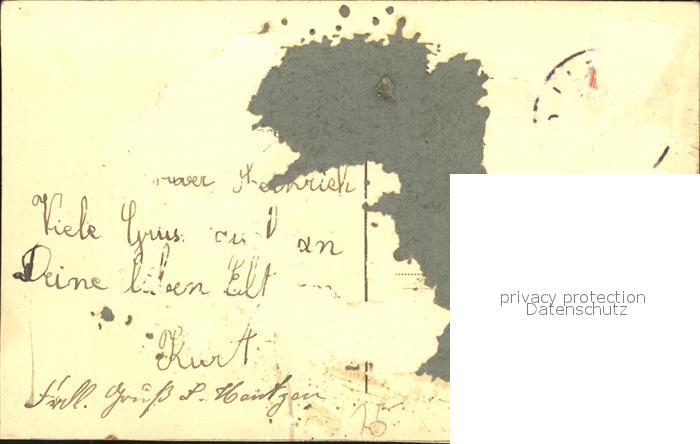 Heinrich
Viele Grus an
Deine liben Elt
Kurt
Frdl. Gruß L. Hentzen
privacy protection
Datenschutz